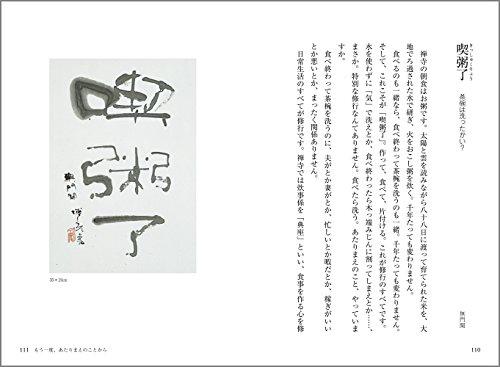 喫粥了
きっしゅくりょう
茶碗は洗ったかい?
無門関
禅寺の朝食はお粥です。太陽と雲を読みながら八十八日に渡って育てられた米を、大
地でろ過された水で研ぎ、火をおこし粥を炊く。千年たっても変わりません。
食べるのも一緒なら、食べ終わって茶碗を洗うのも一緒。千年たっても変わりません。
そして、これこそが「喫粥了」。作って、食べて、片付ける。これが修行のすべてです。
水を使わずに「気」で洗えとか、食べ終わったら木っ端みじんに割ってしまえとか……、
まさか。特別な修行なんてありません。食べたら洗う。あたりまえのこと、やっていま
すか。
食べ終わって茶碗を洗うのに、夫がとか妻がとか、忙しいとか暇だとか、稼ぎがいい
とか悪いとか、まったく関係ありません。
日常生活のすべてが修行です。禅寺では炊事係を「典座」といい、食事を作る心を修
110
喫粥了
無門関
35×24cm
111 もう一度、あたりまえのことから